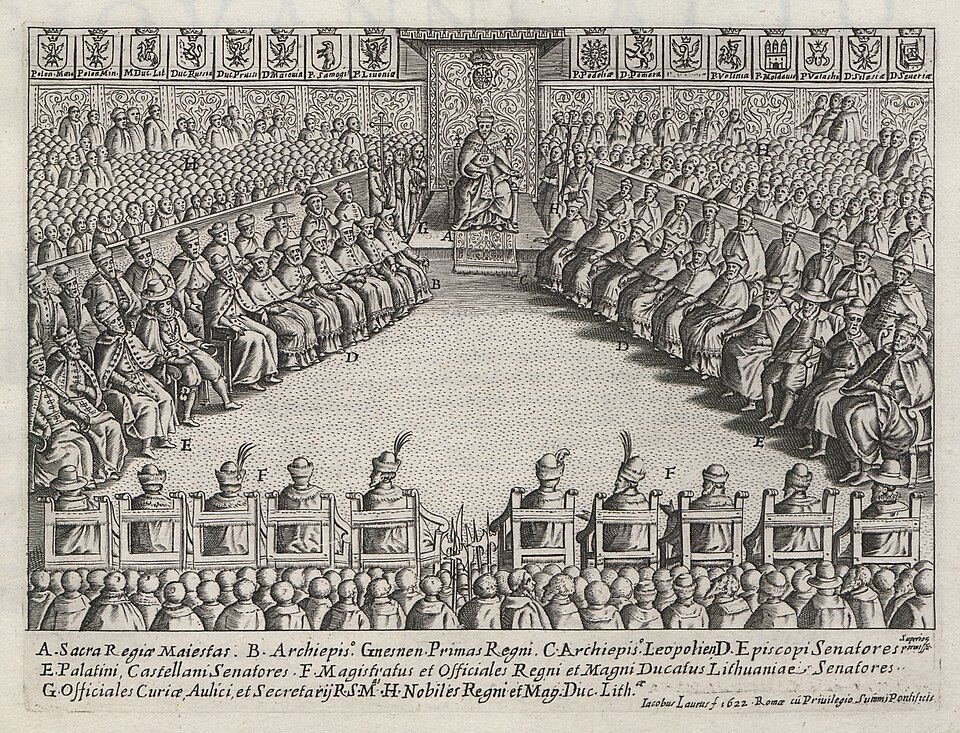 Polon. Maio. Polon Min. M Duc. Lit. Duc. Russia Duc. Prusi D. Masouia P. Samogi P. Liuoniæ P. Podoliæ D. Pomera P. Volinia P. Moldauiæ P Valachi D. Silesiæ D. Seueriæ
H H
G A
B C
D D
E E
F F
A. Sacra Regiæ Maiestas. B. Archiepis.º Gnesnen. Primas Regni. C. Archiepis.º Leopolien D. Episcopi Senatores Superior, permissu.
E. Palatini, Castellani Senatores. F. Magistratus et Officiales Regni et Magni Ducatus Lithuaniæ Senatores.
G. Officiales Curiæ Aulici, et Secretarij R.S.M. H. Nobiles Regni et Mag. Duc. Lith.æ
Iacobus Laurus f 1622. Romæ cū Priuilegio Summi Pontificis